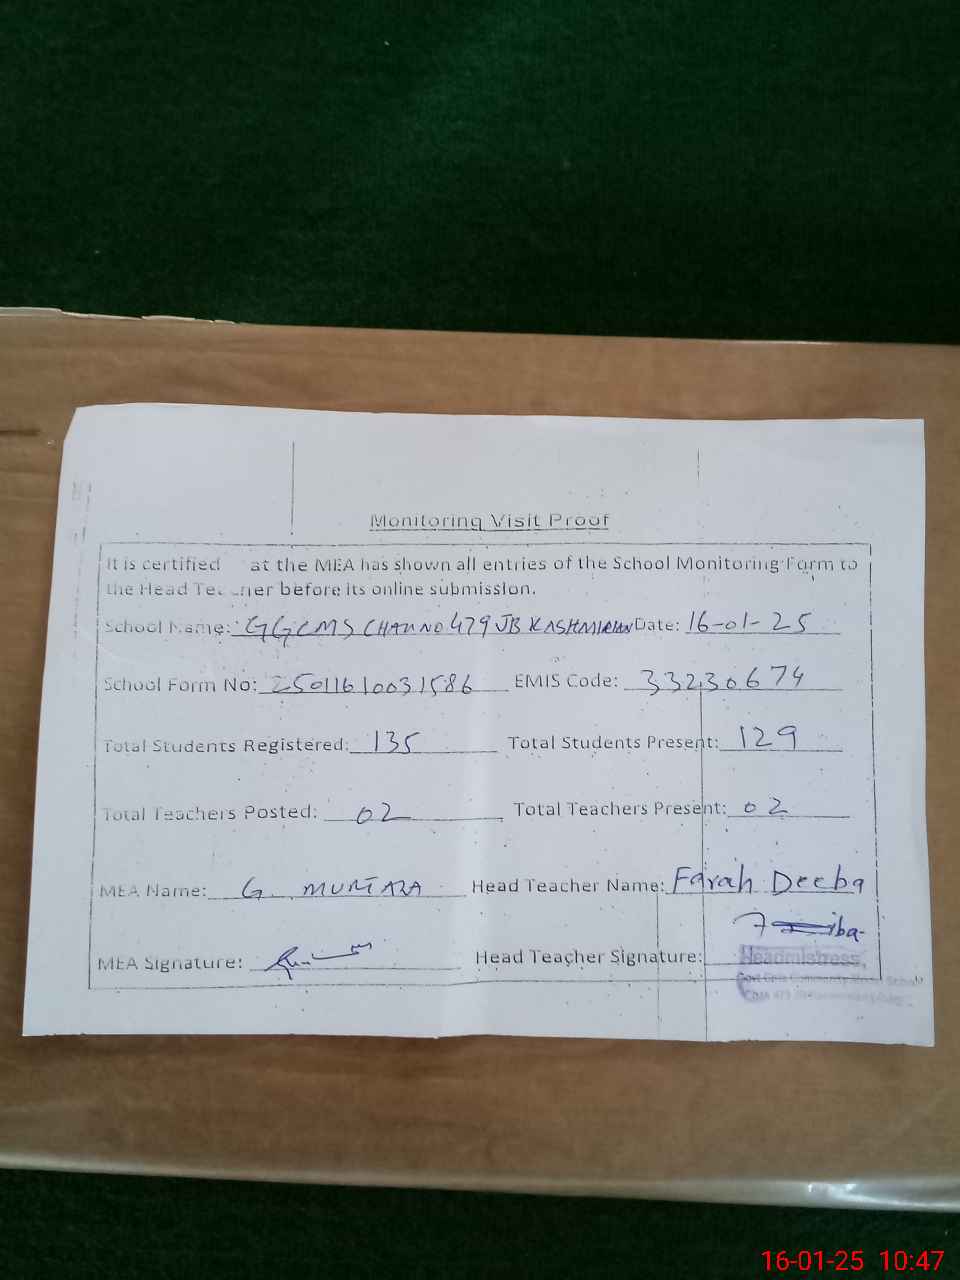 Monitoring Visit Proof
It is certified at the MEA has shown all entries of the School Monitoring Form to
the Head Te her before its online submission.
School Name: GGCMS CHAK NO 479 JB KASHMIRIAN Date: 16-01-25
School Form No: 25011610031586 EMIS Code: 33230674
Total Students Registered: 135 Total Students Present: 129
Total Teachers Posted: 02 Total Teachers Present: 02
MEA Name: G. MURTAZA Head Teacher Name: Farah Deeba
MEA Signature: Head Teacher Signature:
Headmistress,
Govt Girls Community Model School
16-01-25 10:47